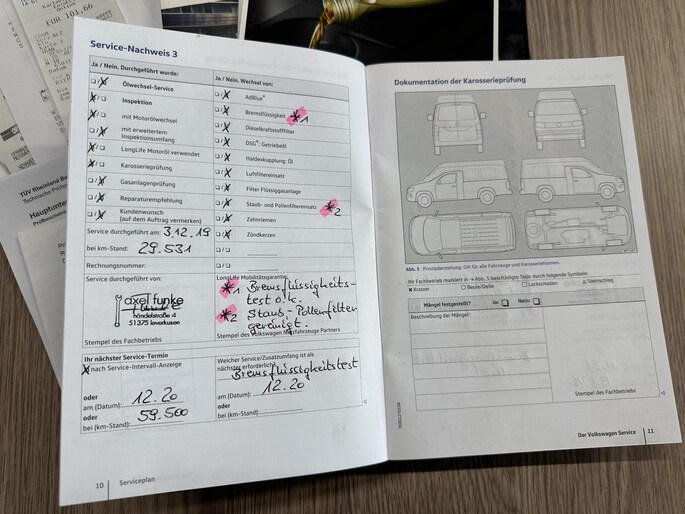 EUR 101,66
TÜV Rheinland
Technische Prüfs
Hauptunter
Service-Nachweis 3
Ja / Nein. Durchgeführt wurde:
Ölwechsel-Service
Inspektion
mit Motorölwechsel
mit erweitertem
Inspektionsumfang
LongLife Motoröl verwendet
Karosserieprüfung
Gasanlagenprüfung
Reparaturempfehlung
Kundenwunsch
(auf dem Auftrag vermerken)
Service durchgeführt am: 3.12.19
bei km-Stand: 29.531
Rechnungsnummer:
Service durchgeführt von:
axel funke
händelstraße 4
51375 leverkusen
Stempel des Fachbetriebs
Ihr nächster Service-Termin
nach Service-Intervall-Anzeige
oder
am (Datum): 12.20
oder
bei (km-Stand): 59.500
Ja / Nein. Wechsel von:
AdBlue®
Bremsflüssigkeit *1
Dieselkraftstofffilter
DSG®: Getriebeöl
Haldexkupplung: Öl
Luftfiltereinsatz
Filter Flüssiggasanlage
Staub- und Pollenfiltereinsatz *2
Zahnriemen
Zündkerzen
LongLife Mobilitätsgarantie:
*1 Bremsflüssigkeits-
test o.k.
*2 Staub-Pollenfilter
gereinigt.
Stempel des Volkswagen Nutzfahrzeuge Partners
Welcher Service/Zusatzumfang ist als
nächster erforderlich?
Bremsflüssigkeitstest
am (Datum): 12.20
bei (km-Stand):
10 Serviceplan
Dokumentation der Karosserieprüfung
Abb. 5 Prinzipdarstellung: Gilt für alle Fahrzeuge und Karosserieformen.
Ihr Fachbetrieb markiert in → Abb. 5 beschädigte Teile durch folgende Symbole:
Kratzer Beule/Delle Lackschaden Steinschlag
Mängel festgestellt? Ja: Nein:
Beschreibung der Mängel:
Stempel des Fachbetriebs
Der Volkswagen Service 11